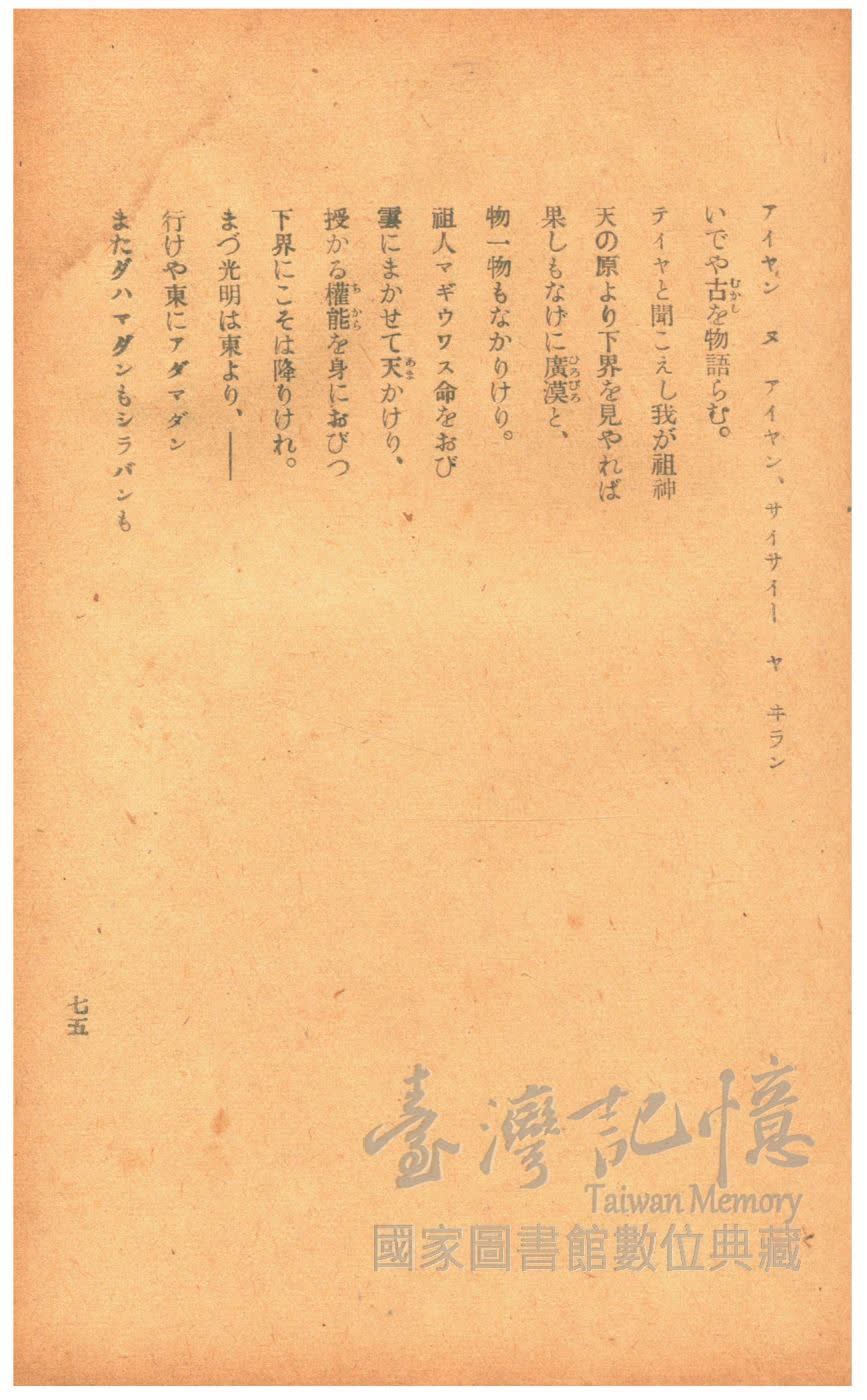 アイヤン ヌ アイヤン、サイサイー ヤ ヰラン
いでや古を物語らむ。
むかし
テイヤと聞こえし我が祖神
天の原より下界を見やれば
果しもなげに廣漠と、
ひろびろ
物一物もなかりけり。
祖人マギウワス命をおび
雲にまかせて天かけり、
あま
授かる權能を身におびつ
ちから
下界にこそは降りけれ。
まづ光明は東より、――
行けや東にアダマダン
またダハマダンもシラバンも
七五
臺灣記憶
Taiwan Memory
國家圖書館數位典藏